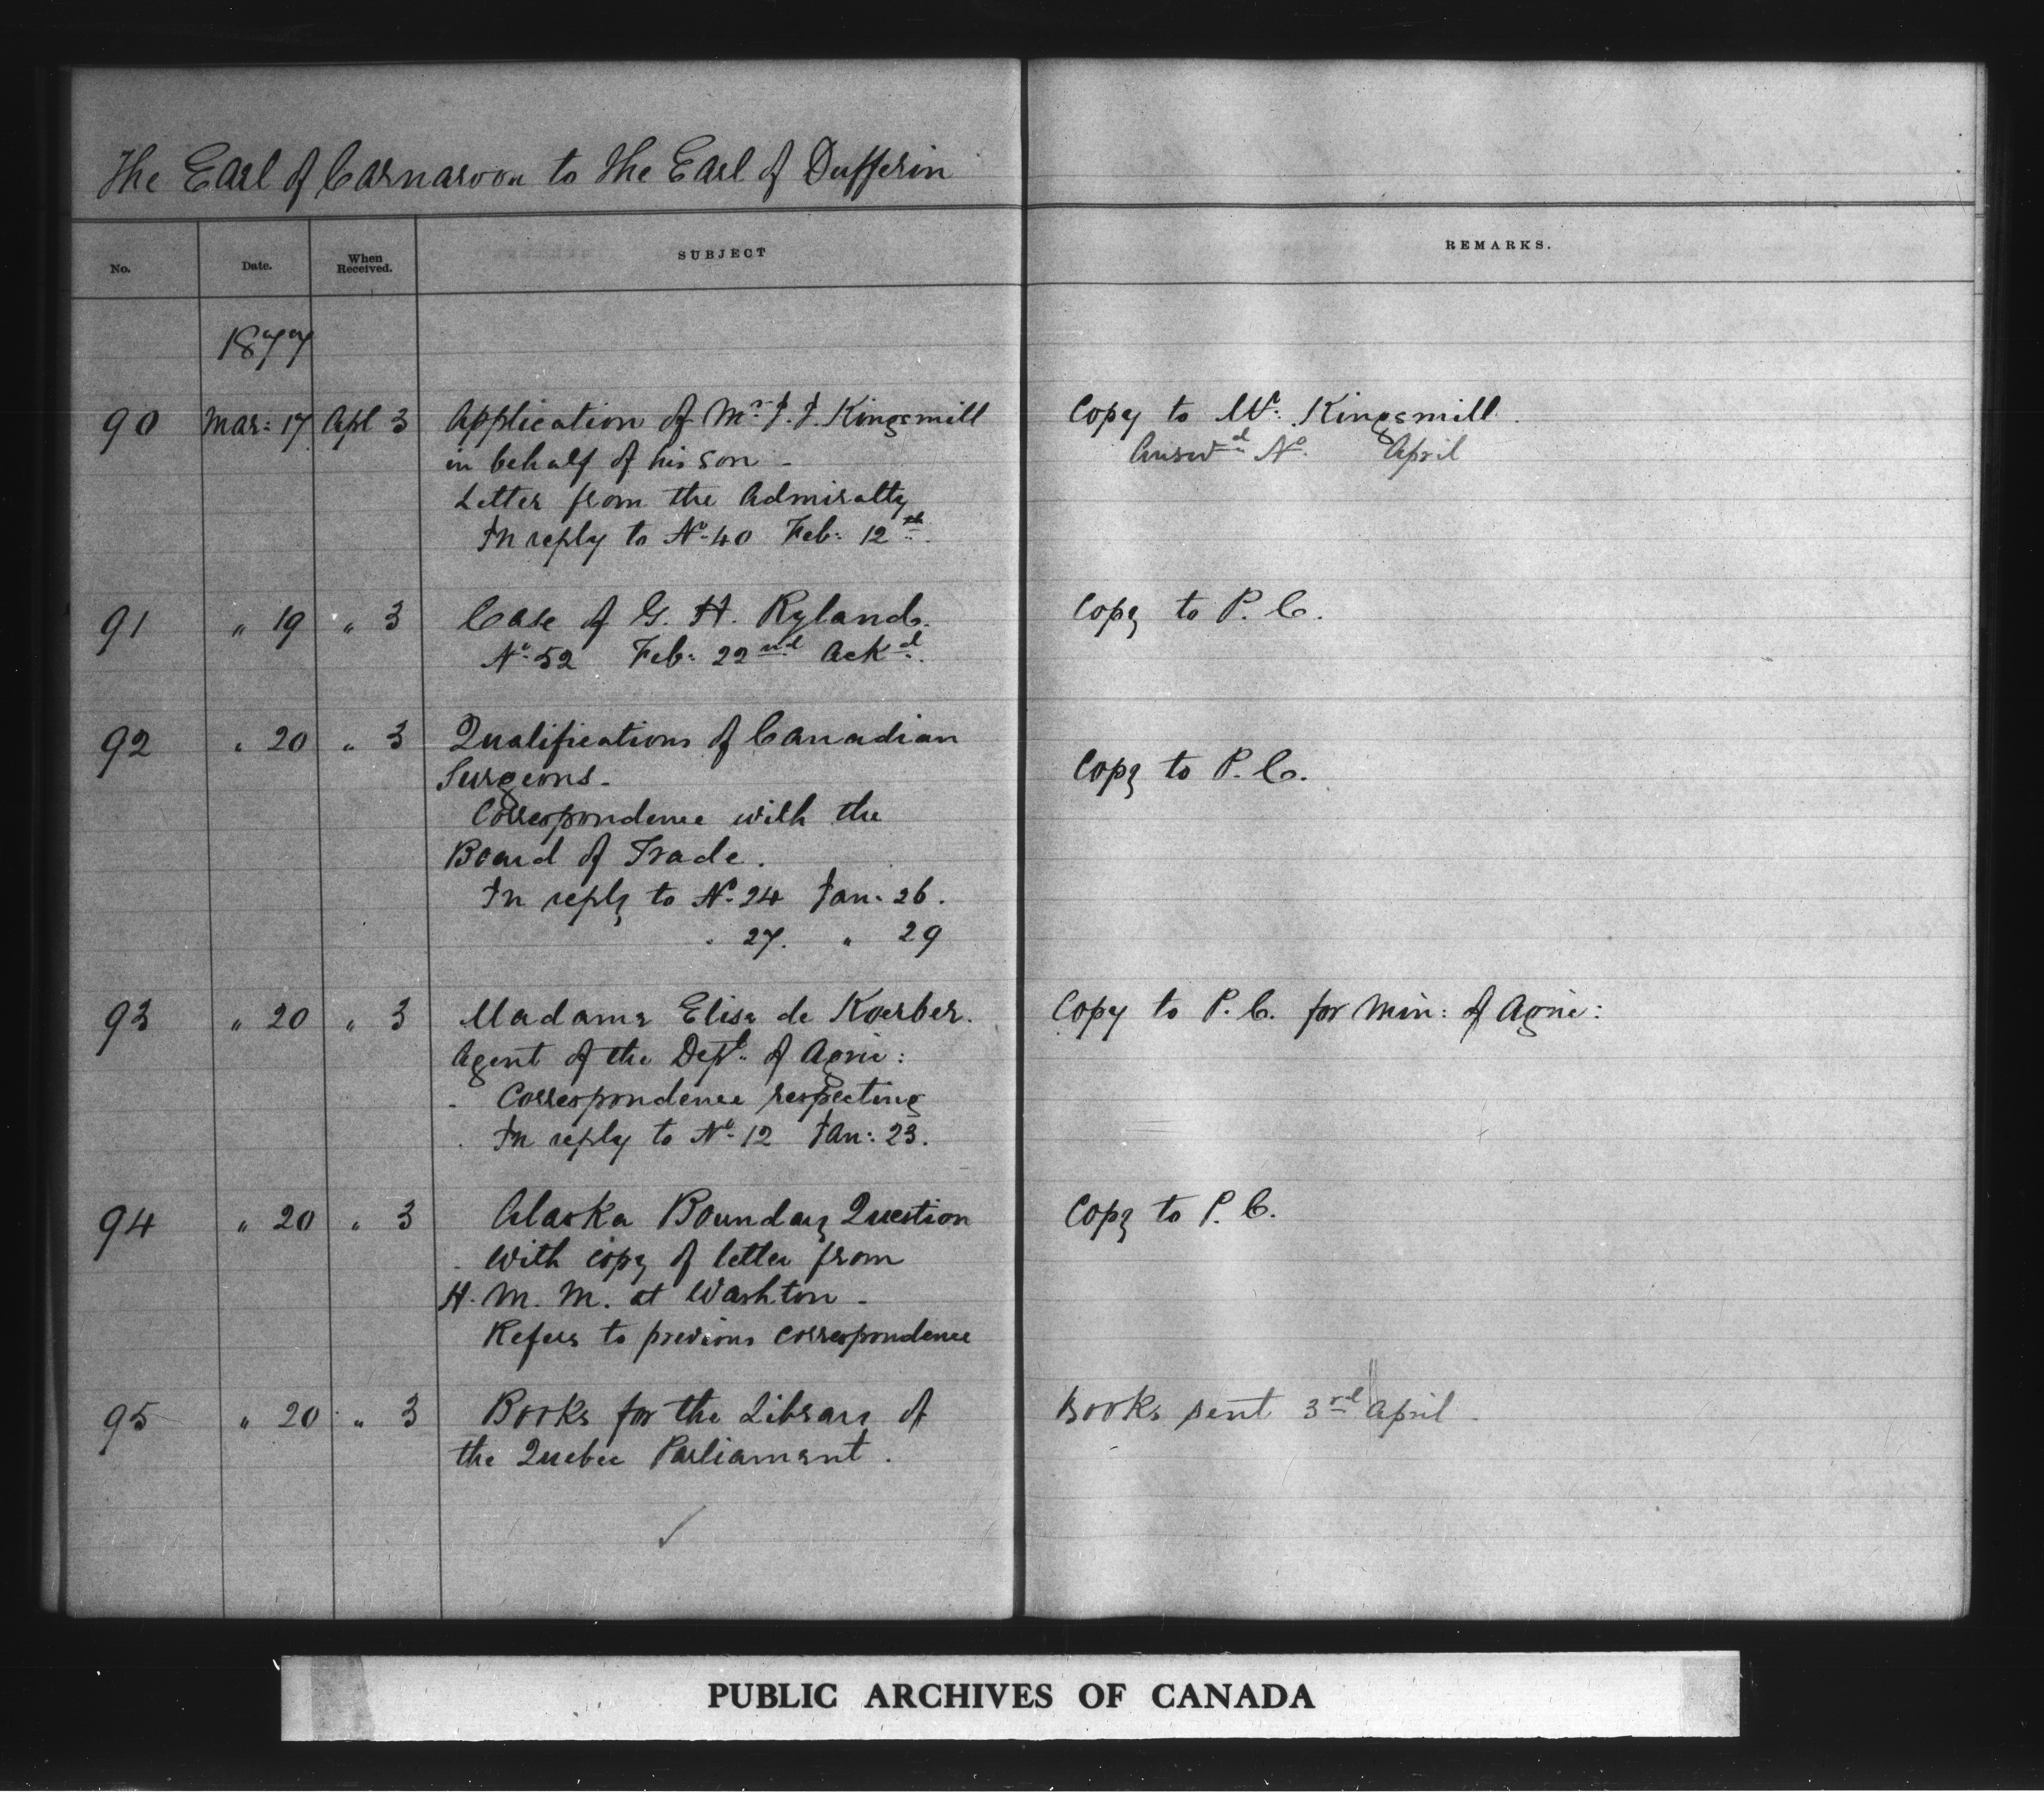 The Earl of Carnarvon to The Earl of Dufferin
No. Date. When Received. SUBJECT REMARKS.
1877
90 Mar: 17 Apl 3 Application of Mr. J. J. Kingsmill Copy to Mr. Kingsmill.
in behalf of his son - Answd. No. April
Letter from the Admiralty
In reply to No. 40 Feb: 12th.
91 " 19 " 3 Case of G. H. Ryland. Copy to P. C.
No. 52 Feb: 22nd Ackd.
92 " 20 " 3 Qualifications of Canadian
Surgeons - Copy to P. C.
Correspondence with the
Board of Trade.
In reply to No. 24 Jan. 26.
" 27. " 29
93 " 20 " 3 Madame Elise de Koerber. Copy to P. C. for Min: of Agric:
Agent of the Dept. of Agric:
- Correspondence respecting
In reply to No. 12 Jan: 23.
94 " 20 " 3 Alaska Boundary Question Copy to P. C.
- With copy of letter from
H. M. M. at Washton -
Refers to previous correspondence
95 " 20 " 3 Books for the Library of Books sent 3rd April -
the Quebec Parliament.
PUBLIC ARCHIVES OF CANADA